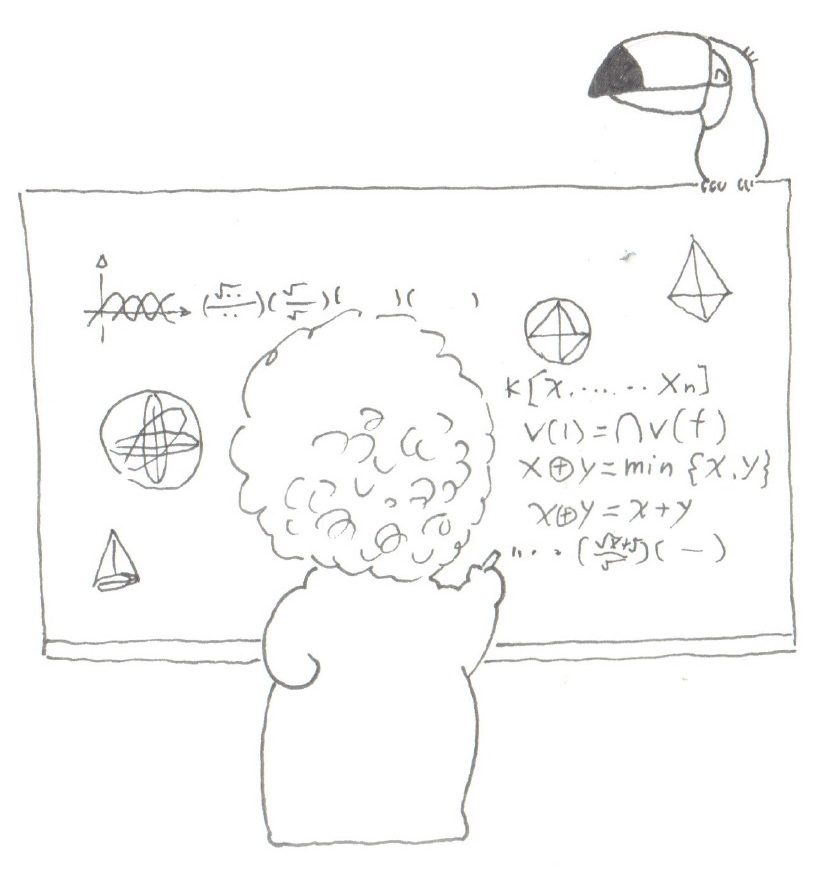 (√‥/‥)(√/√)( )( )
K[X,......Xn]
V(I)=∩V(f)
X⊕y=min {X,y}
X⊕y=x+y
..... (√x+5/√)( — )